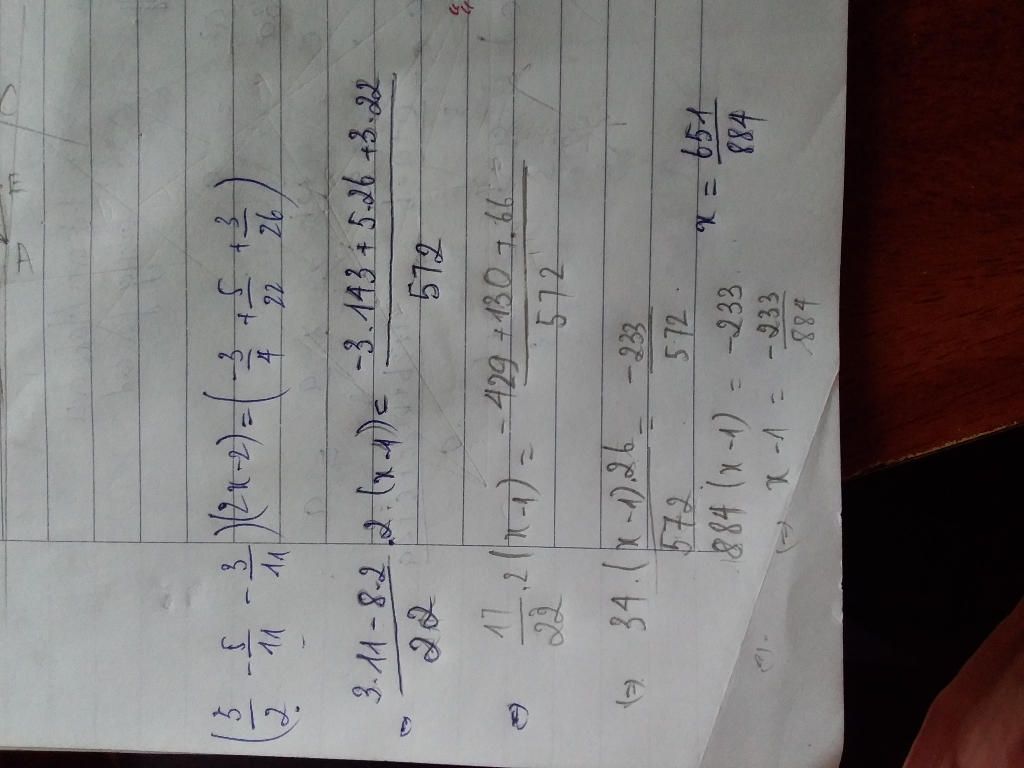 (3/2 - 5/11 - 3/11)(2x-2) = (-3/4 + 5/22 + 3/26)
(=) (3.11 - 8.2)/22 .2.(x-1) = (-3.143 + 5.26 + 3.22)/572
(=) 17/22 .2(x-1) = (-429 + 130 + 66)/572
(=) 34.(x-1).26/572 = -233/572
884(x-1) = -233
(=) x-1 = -233/884
x = 651/884